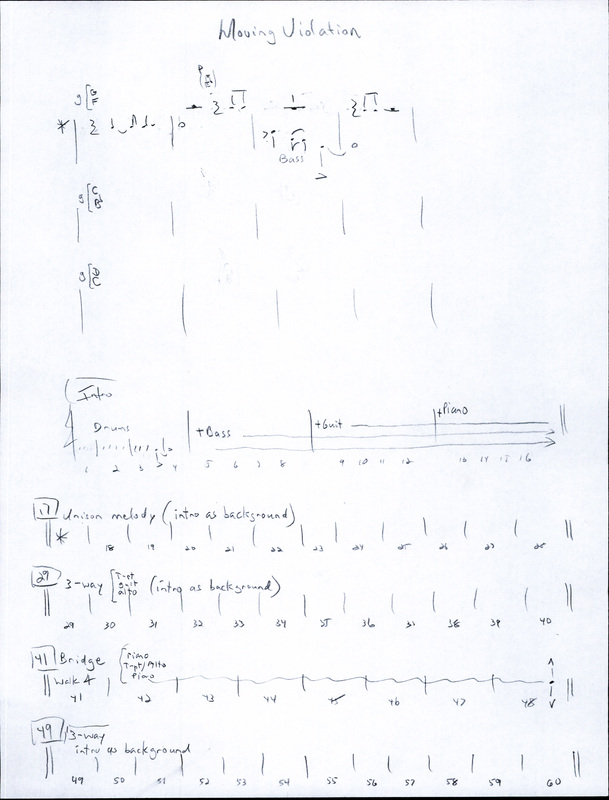 Moving Violation
Bass
Intro
Drums
+Bass
+Guit
+Piano
1 2 3 4 5 6 7 8 9 10 11 12 13 14 15 16
17 Unison melody (intro as background)
18 19 20 21 22 23 24 25 26 27 28
29 3-way [T-pt
guit
alto (intro as background)
29 30 31 32 33 34 35 36 37 38 39 40
41 Bridge [Piano
T-pt/Alto
Piano
Walk 4
41 42 43 44 45 46 47 48
49 3-way
intro as background
49 50 51 52 53 54 55 56 57 58 59 60